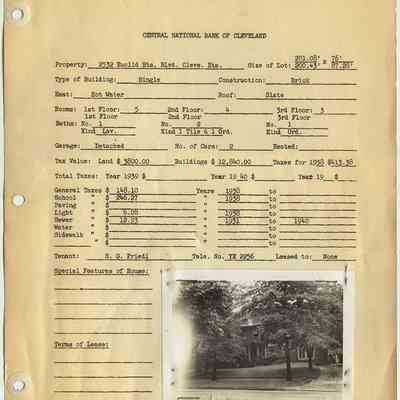 CENTRAL NATIONAL BANK OF CLEVELAND
Property: 2532 Euclid Hts. Blvd. Cleve. Hts. Size of Lot: 201.08' x 76'
200.43' 87.26'
Type of Building: Single Construction: Brick
Heat: Hot Water Roof: Slate
Rooms: 1st Floor: 5 2nd Floor: 4 3rd Floor: 3
1st Floor 2nd Floor 3rd Floor
Baths: No. 1 No. 2 No. 1
Kind Lav. Kind 1 Tile & 1 Ord. Kind Ord.
Garage: Detached No. of Cars: 2 Rented:
Tax Value: Land $ 3800.00 Buildings $ 12,840.00 Taxes for 1938 $413.38
Total Taxes: Year 1939 $ Year 1940 $ Year 19 $
General Taxes $ 148.10 Years 1938 to
School " $ 246.27 " 1938 to
Paving " $ " to
Light " $ 6.08 " 1938 to
Sewer " $ 12.93 " 1931 to 1940
Water " $ " to
Sidewalk " $ " to
" $ " to
Tenant: S. G. Friedl Tele. No. YE 2956 Leased to: None
Special Features of House:
Terms of Lease: